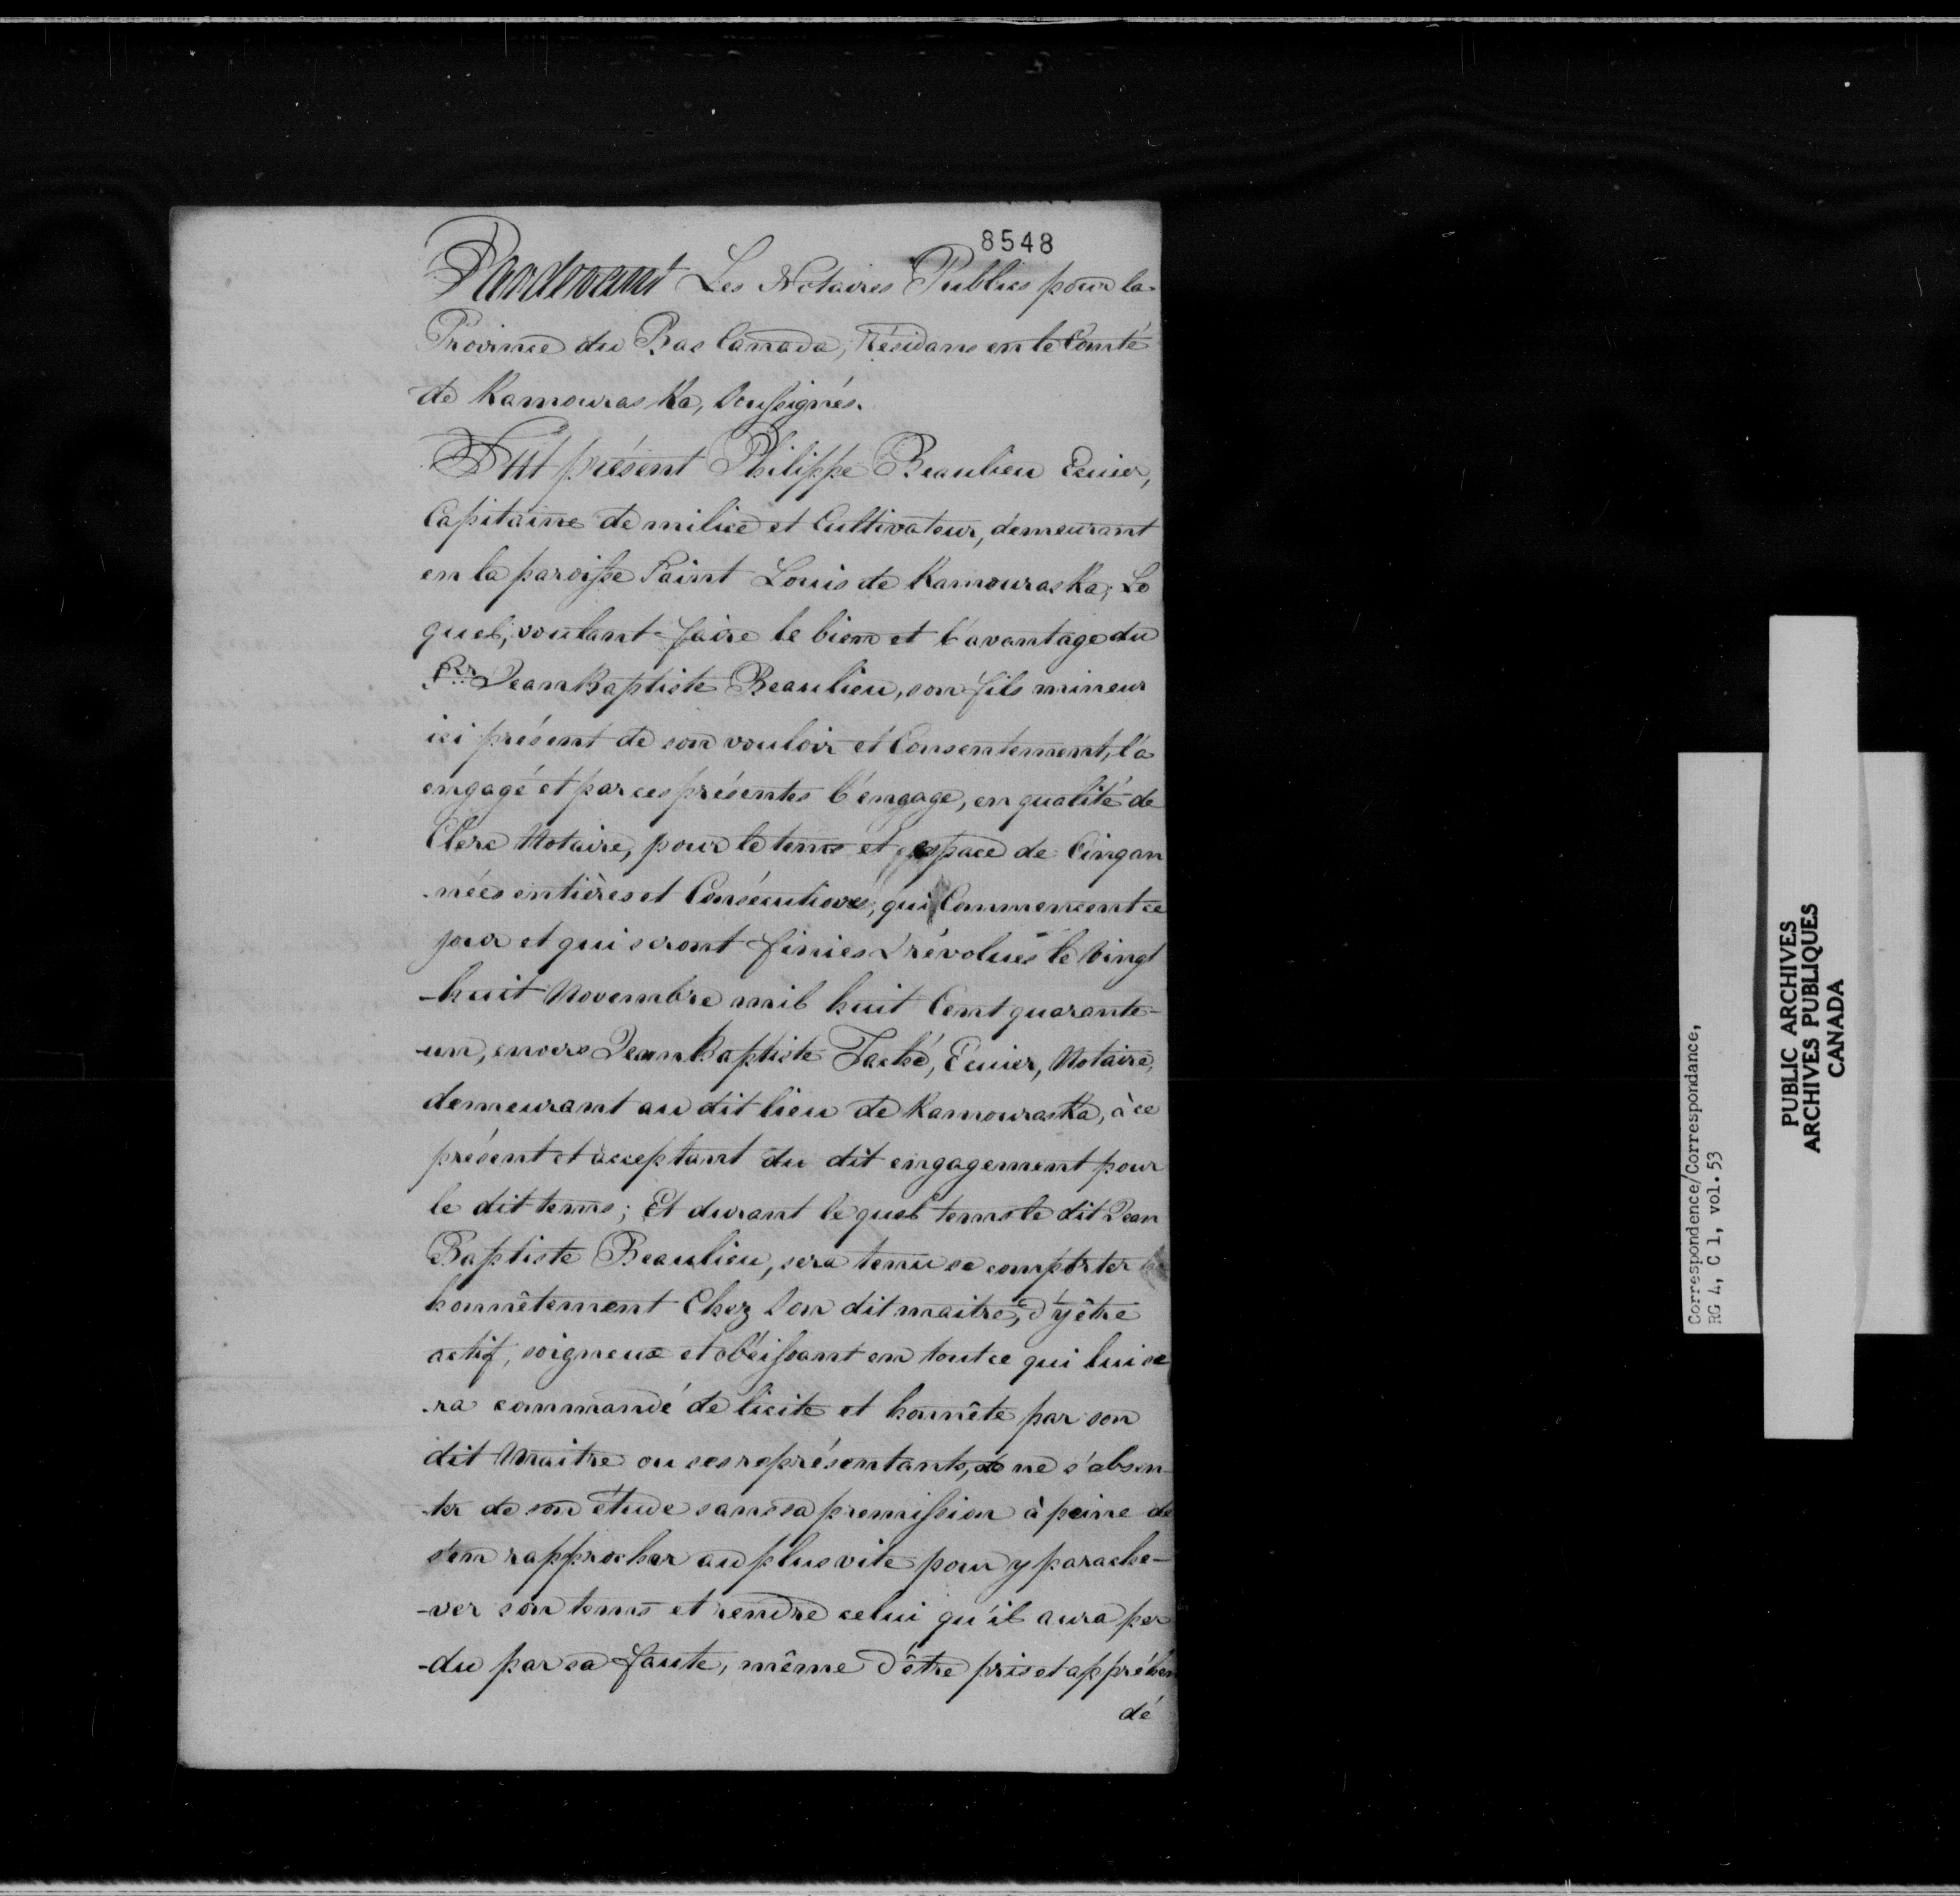 8548
Pardevant Les Notaires Publics pour la
Province du Bas Canada, Résidans en le Comté
de Kamouraska, Soussignés.
Fut présent Philippe Beaulieu Ecuier,
Capitaine de milice et Cultivateur, demeurant
en la paroisse Saint Louis de Kamouraska; Le
quel, voulant faire le bien et l'avantage du
Sr. Jean Baptiste Beaulieu, son fils mineur
ici présent de son vouloir et Consentement, l'a
engagé et par ces présentes l'engage, en qualité de
Clerc Notaire, pour le tems et espace de Cinq an
-nées entières et Consécutives, qui Commencent ce
jour et qui seront finies & révolues le Vingt
-huit Novembre mil huit Cent quarante-
-un, envers Jean Baptiste Taché, Ecuier, Notaire,
demeurant au dit lieu de Kamouraska, à ce
présent et acceptant du dit engagement pour
le dit tems; Et durant le quel tems le dit Jean
Baptiste Beaulieu, sera tenu se comporter
honnêtement Chez Son dit maitre, d'y être
actif, soigneux et obéissant en tout ce qui lui se
-ra commandé de licite et honnête par son
dit Maitre ou ses représentants, de ne s'absen-
-ter de son étude sans sa premission à peine de
s'en rapprocher au plus vite pour y parache-
-ver son tems et rendre celui qu'il aura per
-du par sa faute, même d'être pris et appréhen
dé
Correspondence/Correspondance,
RG 4, C 1, vol. 53
PUBLIC ARCHIVES
ARCHIVES PUBLIQUES
CANADA